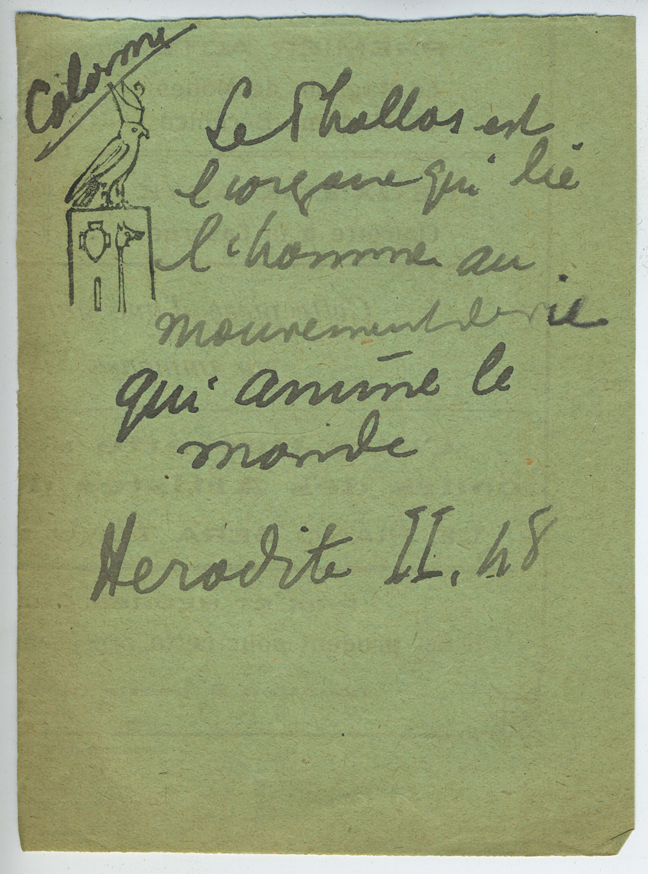 Colonne
Le Phallus est
l'organe qui lie
l'homme au
mouvement de vie
qui anime le
monde
Herodite II, 48